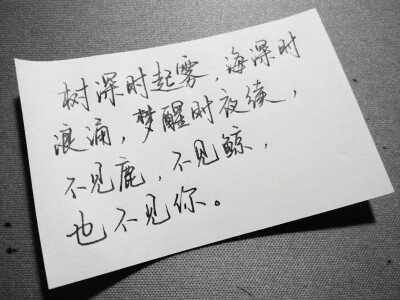 树深时起雾，海深时
浪涌，梦醒时夜续，
不见鹿，不见鲸，
也不见你。